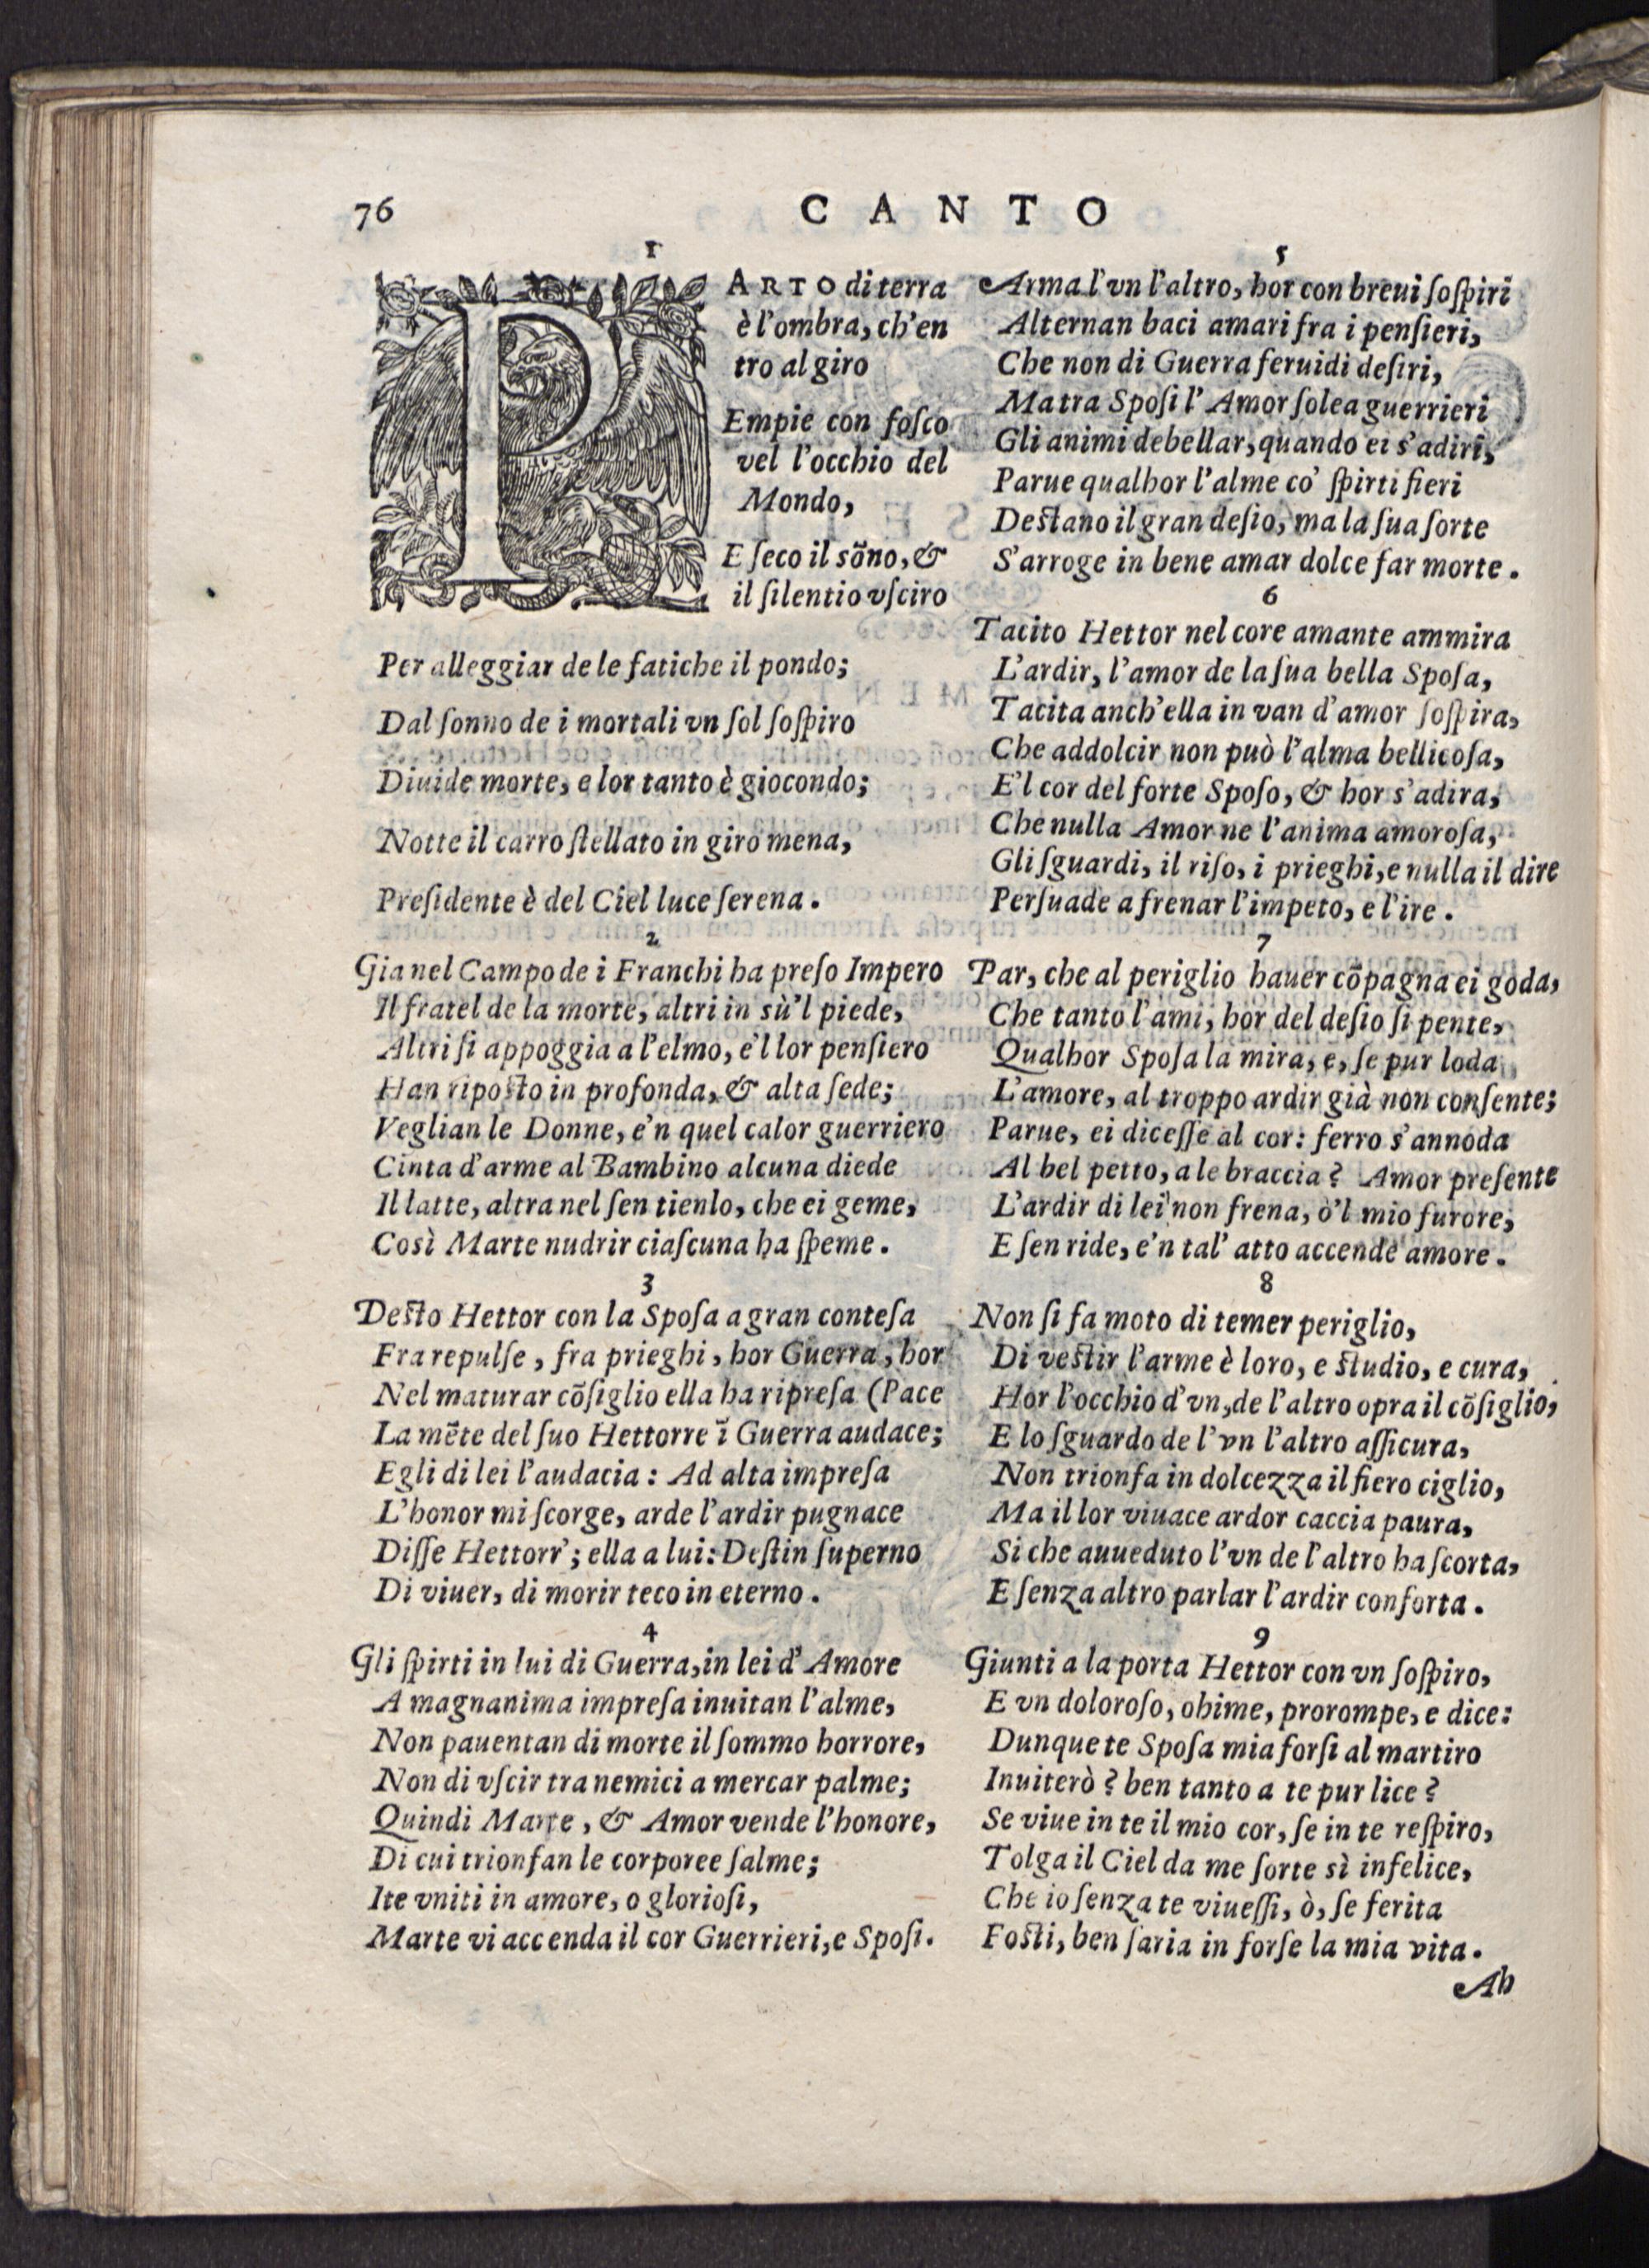 76
CANTO
1
PARTO di terra
è l'ombra, ch'en
tro al giro
Empie con foſco
vel l'occhio del
Mondo,
E ſeco il sõno, &
il ſilentio vſciro
Per alleggiar de le fatiche il pondo;
Dal ſonno de i mortali vn ſol ſoſpiro
Diuide morte, e lor tanto è giocondo;
Notte il carro ſtellato in giro mena,
Preſidente è del Ciel luce ſerena.
2
Gia nel Campo de i Franchi ha preſo Impero
Il fratel de la morte, altri in sù'l piede,
Altri ſi appoggia a l'elmo, e'l lor penſiero
Han ripoſto in profonda, & alta ſede;
Veglian le Donne, e'n quel calor guerriero
Cinta d'arme al Bambino alcuna diede
Il latte, altra nel ſen tienlo, che ei geme,
Così Marte nudrir ciaſcuna ha ſpeme.
3
Deſto Hettor con la Spoſa a gran conteſa
Fra repulſe, fra prieghi, hor Guerra, hor
Nel maturar cõſiglio ella ha ripreſa (Pace
La mẽte del ſuo Hettorre ĩ Guerra audace;
Egli di lei l'audacia: Ad alta impreſa
L'honor mi ſcorge, arde l'ardir pugnace
Diſſe Hettorr'; ella a lui: Deſtin ſuperno
Di viuer, di morir teco in eterno.
4
Gli ſpirti in lui di Guerra, in lei d'Amore
A magnanima impreſa inuitan l'alme,
Non pauentan di morte il ſommo horrore,
Non di vſcir tra nemici a mercar palme;
Quindi Marte, & Amor vende l'honore,
Di cui trionfan le corporee ſalme;
Ite vniti in amore, o glorioſi,
Marte vi accenda il cor Guerrieri, e Spoſi.
5
Arma l'vn l'altro, hor con breui ſoſpiri
Alternan baci amari fra i penſieri,
Che non di Guerra feruidi deſiri,
Ma tra Spoſi l'Amor ſolea guerrieri
Gli animi debellar, quando ei s'adiri,
Parue qualhor l'alme co' ſpirti fieri
Deſtano il gran deſio, ma la ſua ſorte
S'arroge in bene amar dolce far morte.
6
Tacito Hettor nel core amante ammira
L'ardir, l'amor de la ſua bella Spoſa,
Tacita anch'ella in van d'amor ſoſpira,
Che addolcir non può l'alma bellicoſa,
E'l cor del forte Spoſo, & hor s'adira,
Che nulla Amor ne l'anima amoroſa,
Gli ſguardi, il riſo, i prieghi, e nulla il dire
Perſuade a frenar l'impeto, e l'ire.
7
Par, che al periglio hauer cõpagna ei goda,
Che tanto l'ami, hor del deſio ſi pente,
Qualhor Spoſa la mira, e, ſe pur loda
L'amore, al troppo ardir già non conſente;
Parue, ei diceſſe al cor: ferro s'annoda
Al bel petto, a le braccia? Amor preſente
L'ardir di lei non frena, ò'l mio furore,
E ſen ride, e'n tal' atto accende amore.
8
Non ſi fa moto di temer periglio,
Di veſtir l'arme è loro, e ſtudio, e cura,
Hor l'occhio d'vn, de l'altro opra il cõſiglio,
E lo ſguardo de l'vn l'altro aſſicura,
Non trionfa in dolcezza il fiero ciglio,
Ma il lor viuace ardor caccia paura,
Si che auueduto l'vn de l'altro ha ſcorta,
E ſenza altro parlar l'ardir conforta.
9
Giunti a la porta Hettor con vn ſoſpiro,
E vn doloroſo, ohime, prorompe, e dice:
Dunque te Spoſa mia forſi al martiro
Inuiterò? ben tanto a te pur lice?
Se viue in te il mio cor, ſe in te reſpiro,
Tolga il Ciel da me ſorte sì infelice,
Che io ſenza te viueſſi, ò, ſe ferita
Foſti, ben ſaria in forſe la mia vita.
Ah